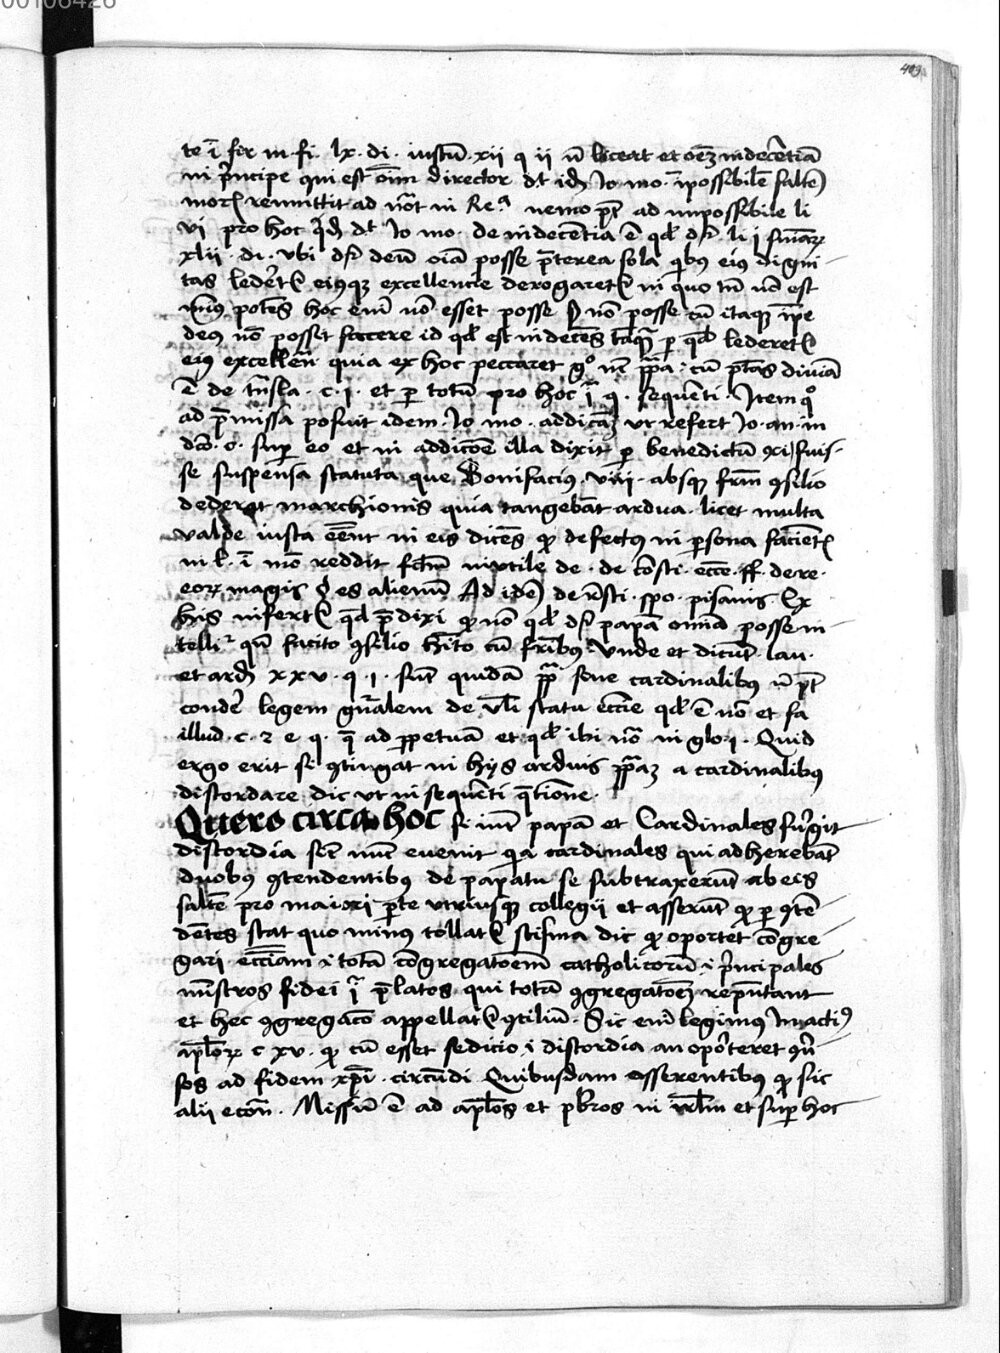 00106426
409
te ī fir m. fi. lx. di. iustū. xii q ii n̄ liceat et oēz indecētiā
in p̄ncipe qui est oīm director dt idē Jo mo. īpossibilē saltē
remittit ad nōt in Reᵃ nemo pt̄ ad impossibile li
vi pro hoc qd̄ dt Jo mo. de indecētia ē qd̄ dr̄ li i sūmaꝝ
xlii. di. vbi dr̄ deū oīa posse p̄terea sola qibꝰ eiꝰ digni-
tas lederet᷑ eiꝰqꝫ excellencie derogaret᷑ in quo tn̄ nō est
minꝰ potēs hoc eni nō esset posse ꝫ nō posse cū itaqꝫ ip̄e
deꝰ nō posset facere id qd̄ est indecēs tāqꝫ ꝑ qd̄ lederet᷑
eiꝰ excellēn̄ quia ex hoc peccaret gͦ nec pp̄a. cū ptās diuīa
ē de trn̄sla. c. i. et ꝑ totū pro hoc ī q̄. sequēti. Item qͦ
ad p̄missa posuit idem. Jo mo. addicōꝫ vt refert Jo. an. in
dc̄o. c. suꝑ eo et in addicōe illa dixit ꝑ benedictū xi fuis-
se suspensa statuta que Bonifaciꝰ viii. absqꝫ frm̄ ꝯsilio
dederat marchionis quia tangebāt ardua. licet multa
valde iusta eēnt in eis dicēs ꝙ defectꝰ in ꝑsona faciēt᷑
in l. ī mō reddit fc̄m inutile de. de cōsti. ecce. ff. de re.
eoꝝ magis ꝗ̄ es alienū Ad idē de rēsti. spo. pisanis. Ex
his infert᷑ qd̄ p̄dixi ꝙ nō qd̄ dr̄ papā omīa posse in
telliᵗ qn̄ facito ꝯsilio hīto cū frībꝰ Vnde et dicūt. lau.
et archi xxv. q. i. sūt quidā pp̄ sine cardinalibꝰ n̄ pt̄
condere legem gn̄alem de vl̄i statu ecc̄ie qd̄ ē nō et fa
illud. c. 2 e q. q̄ ad ꝑpetuam et qd̄ ibi nō in glo. i. Quid
ergo erit si ꝯtingat in hijs arduis pp̄aꝫ a cardinalibꝰ
discordare dic vt in sequēti q̄tione.
Quero circa hoc si int̄ papā et Cardinales surgit
discordia sic̄ nūc euenit qia cardinales qui adherebāt
duobꝰ ꝯtendentibꝰ de papatu se subtraxerūt ab eis
saltē pro maiori ꝑte vtriusqꝫ collegii et asserūt ꝙ ꝑ ꝯtē
dētes stat quo minꝰ tollat᷑ scisma dic ꝙ oportet cōgre
gari ecc̄iam i totā cōgregatoēm catholicorū i p̄ncipales
mīstros fidei ī p̄latos qui totā ꝯgregatoēꝫ rep̄ntant
et hec ꝯgregacō appellat᷑ ꝯciliū. Sic eni legimꝰ In actiꝰ
apl̄oꝝ c xv. ꝙ cū esset sedicio i discordia an oporteret ꝯū̄
sos ad fidem xp̄i. circūdi Quibusdam asserentibꝰ ꝙ sic
alii ecōn̄. Missū ē ad apl̄os et pb̄ros in irl̄m et suꝑ hoc